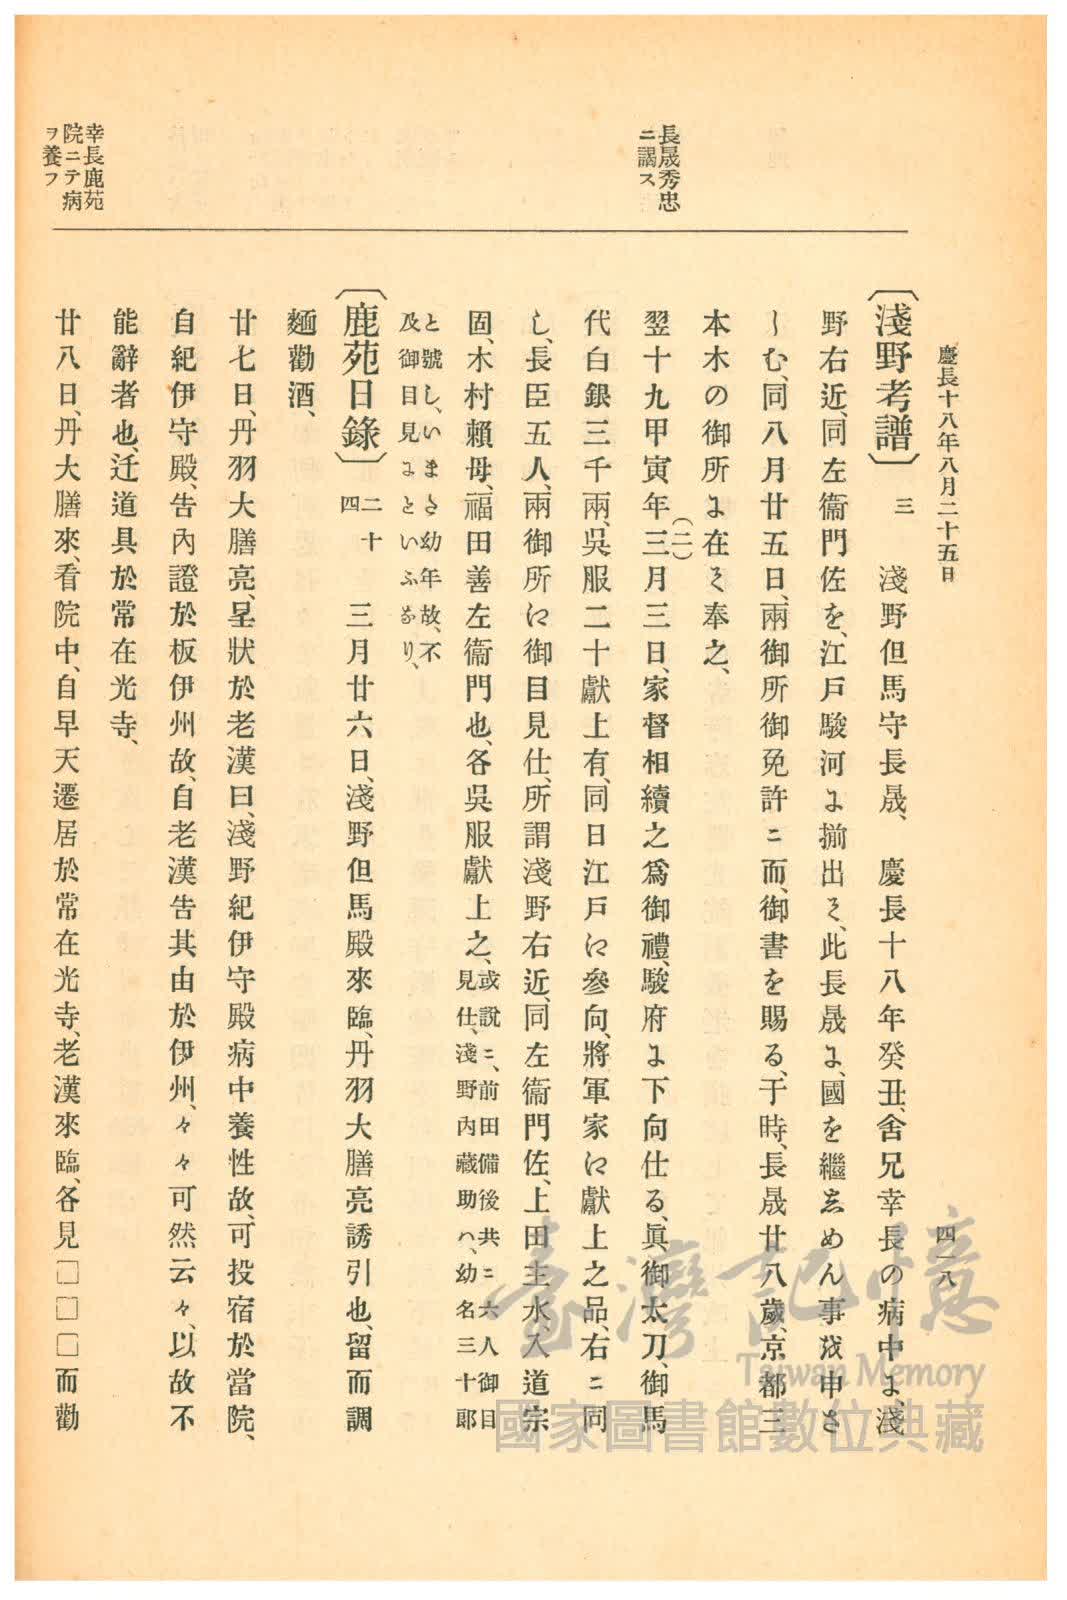 慶長十八年八月二十五日
四一八
長晟秀忠
ニ謁ス
幸長鹿苑
院ニテ病
ヲ養フ
〔淺野考譜〕三 淺野但馬守長晟、 慶長十八年癸丑、舍兄幸長の病中に、淺
野右近、同左衞門佐を、江戸駿河に搠出そ、此長晟に、國を繼しめん事を申さ
しむ、同八月廿五日、兩御所御免許ニ而、御書を賜る、于時、長晟廿八歲、京都三
本木の御所に在そ奉之、
翌十九甲寅年三(二)月三日、家督相續之爲御禮、駿府に下向仕る、眞御太刀、御馬
代白銀三千兩、吳服二十獻上有、同日江戸に參向、將軍家に獻上之品、右ニ同
し、長臣五人、兩御所に御目見仕、所謂淺野右近、同左衞門佐、上田主水、入道宗
固、木村賴母、福田善左衞門也、各吳服獻上之、或說ニ、前田備後共ニ六人御目
見仕、淺野內藏助ハ、幼名三十郞
と號し、いまた幼年故、不
及御目見にといふなり、
〔鹿苑日錄〕二十四 三月廿六日、淺野但馬殿來臨、丹羽大膳亮誘引也、留而調
麵勸酒、
廿七日、丹羽大膳亮、呈狀於老漢曰、淺野紀伊守殿病中養性故、可投宿於當院、
自紀伊守殿、告內證於板伊州故、自老漢告其由於伊州、々々可然云々、以故不
能辭者也、迁道具於常在光寺、
廿八日、丹大膳來、看院中、自早天遷居於常在光寺、老漢來臨、各見□□□而勸
臺灣記憶
Taiwan Memory
國家圖書館數位典藏